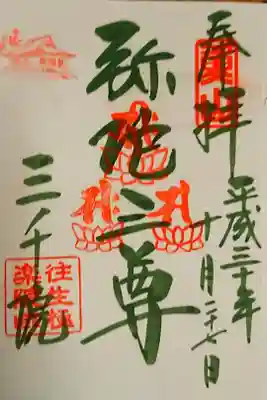 奉拝
平成三十年
十月二十七日
弥陀三尊
三千院
往生極
楽院